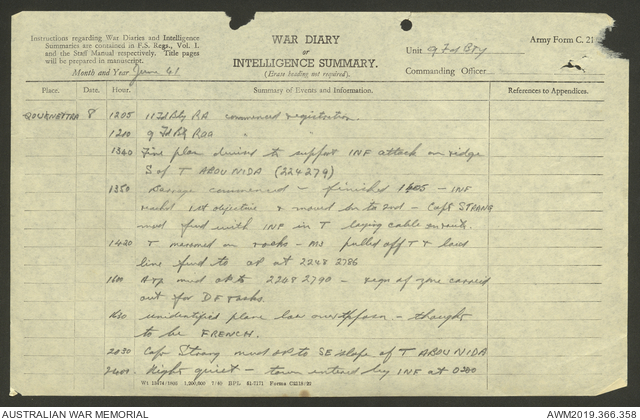 Instructions regarding War Diaries and Intelligence
Summaries are contained in F.S. Regs., Vol. I.
and the Staff Manual respectively. Title pages
will be prepared in manuscript.
Month and Year June 41
WAR DIARY
or
INTELLIGENCE SUMMARY.
(Erase heading not required).
Army Form C. 21
Unit 9 Fd Bty
Commanding Officer
Place. Date. Hour. Summary of Events and Information. References to Appendices.
QOUNEITRA 8 1205 11 Fd Bty RA commenced registration.
1210 9 Fd Bty RAA "
1340 Fire plan devised to support INF attack on ridge
S of T ABOU NIDA (224279)
1350 Barrage commenced – finished 1405 – INF
reached 1st objective & moved on to 2nd – Capt STRANG
fwd with INF in T laying cable en route.
1420 T on rocks – pulled off T & laid
line fwd to OP at 2248 2786
1600 OP to 2208 2790 – of zone carried
out for DF tasks.
unidentified plane low – thought
to be FRENCH.
2030 Capt Strang OP to SE slope of T ABOU NIDA
2400 Night quiet – town entered by INF at
Wt 13474/1805 1,200,000 7/40 BPL 51-7171 Forms C2118/22
AUSTRALIAN WAR MEMORIAL
AWM2019.366.358